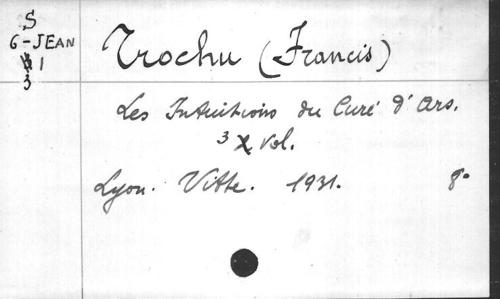 S
6-JEAN
1
3
Trochu (Francis)
Les Intuitions du Curé d'Ars.
3 vol.
Lyon. Vitte. 1931. 8°